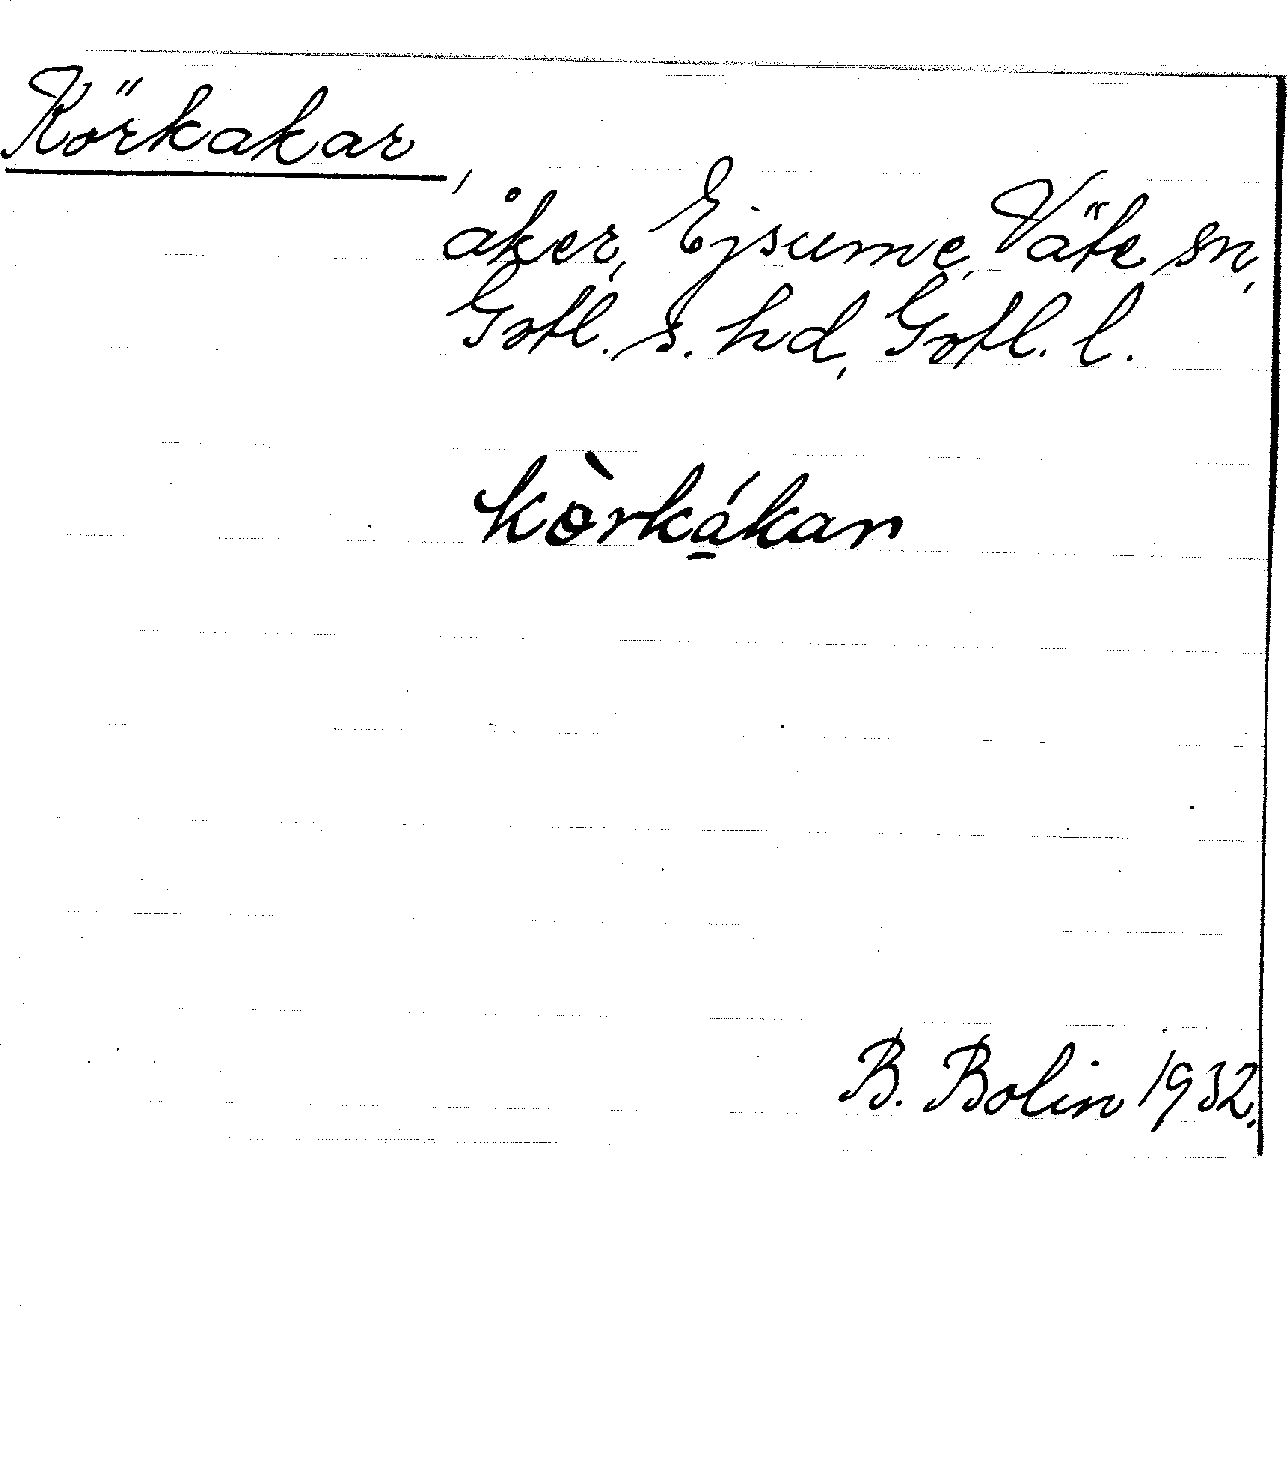 Körkakar,
åker, Ejsume, Väte sn,
Gotl. s. hd, Gotl. l.
kòrká̱kar
B. Bolin 1932.